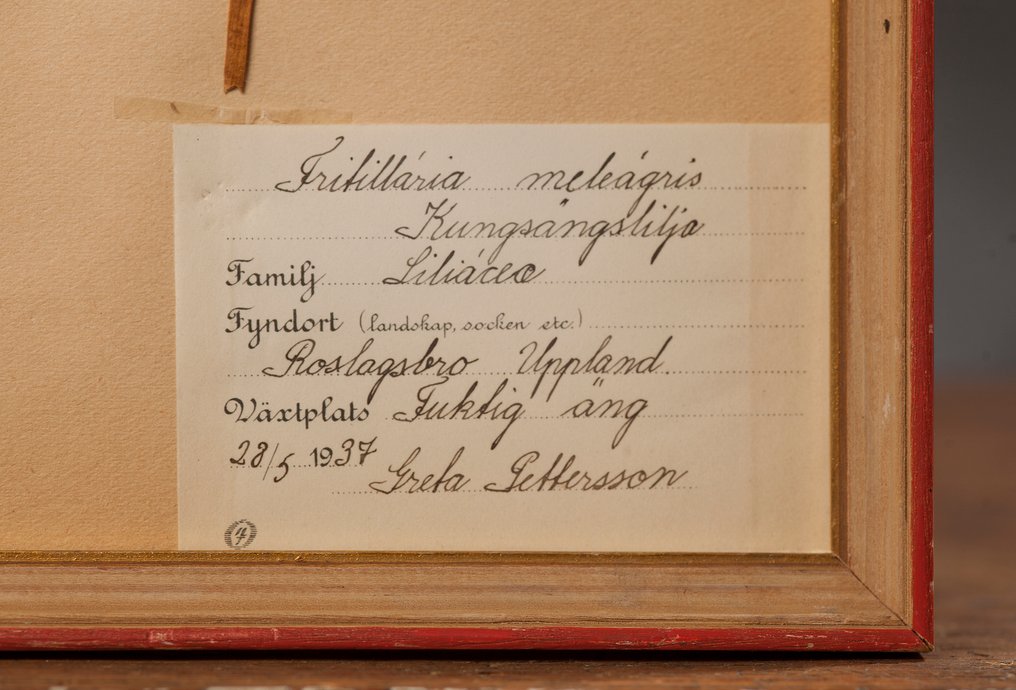 Fritillária meleágris
Kungsängslilja
Familj Liliáceæ
Fyndort (landskap, socken etc.)
Roslagsbro Uppland.
Växtplats Fuktig äng
28/5 1937 Greta Pettersson